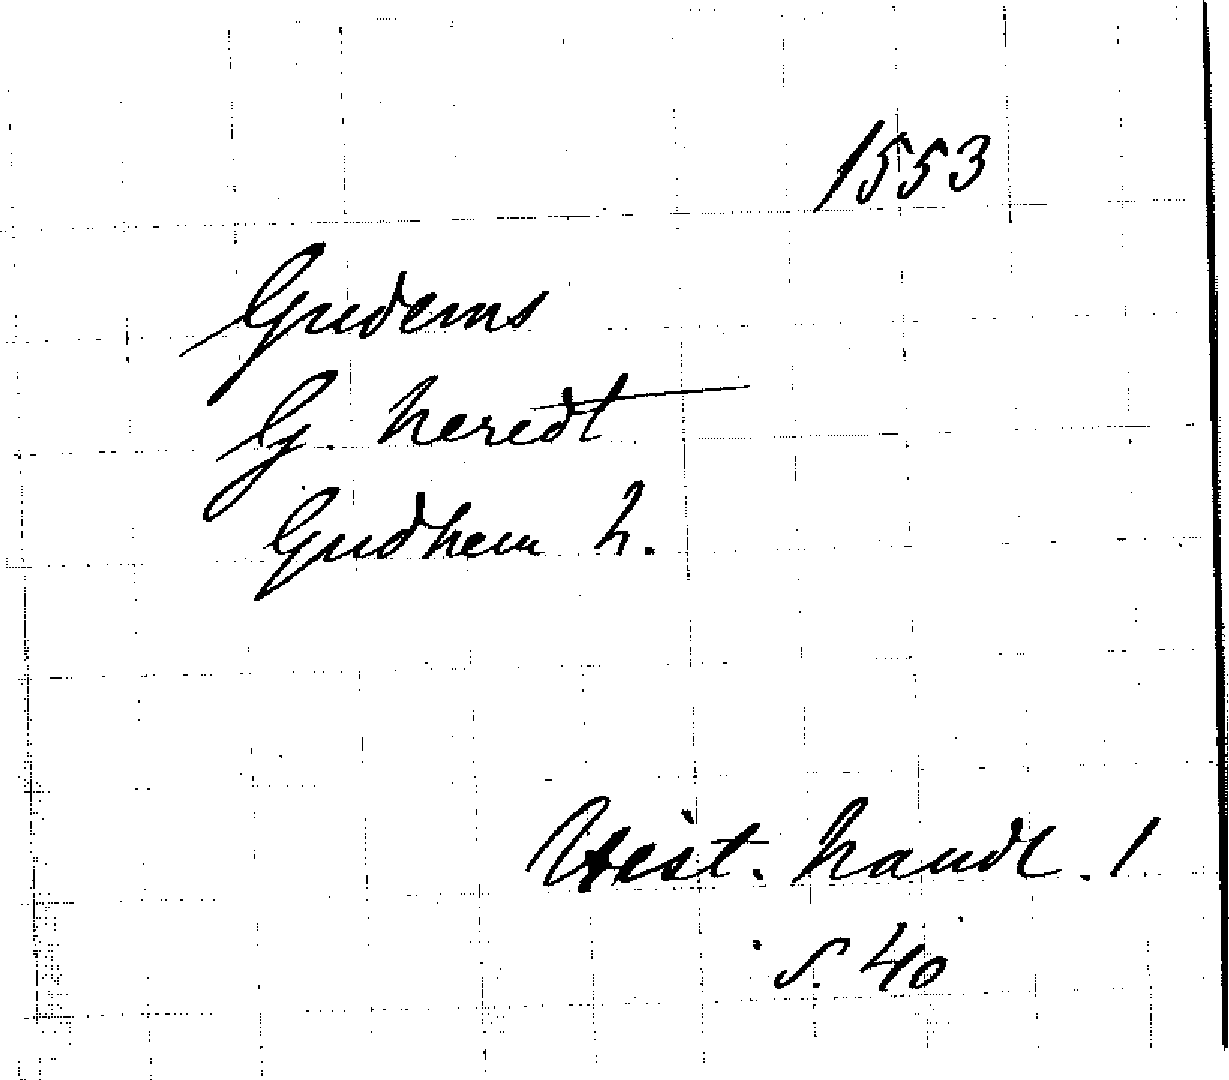 1553
Gudems
G. heredt
Gudhem h.
Hist. handl. 1
s. 40